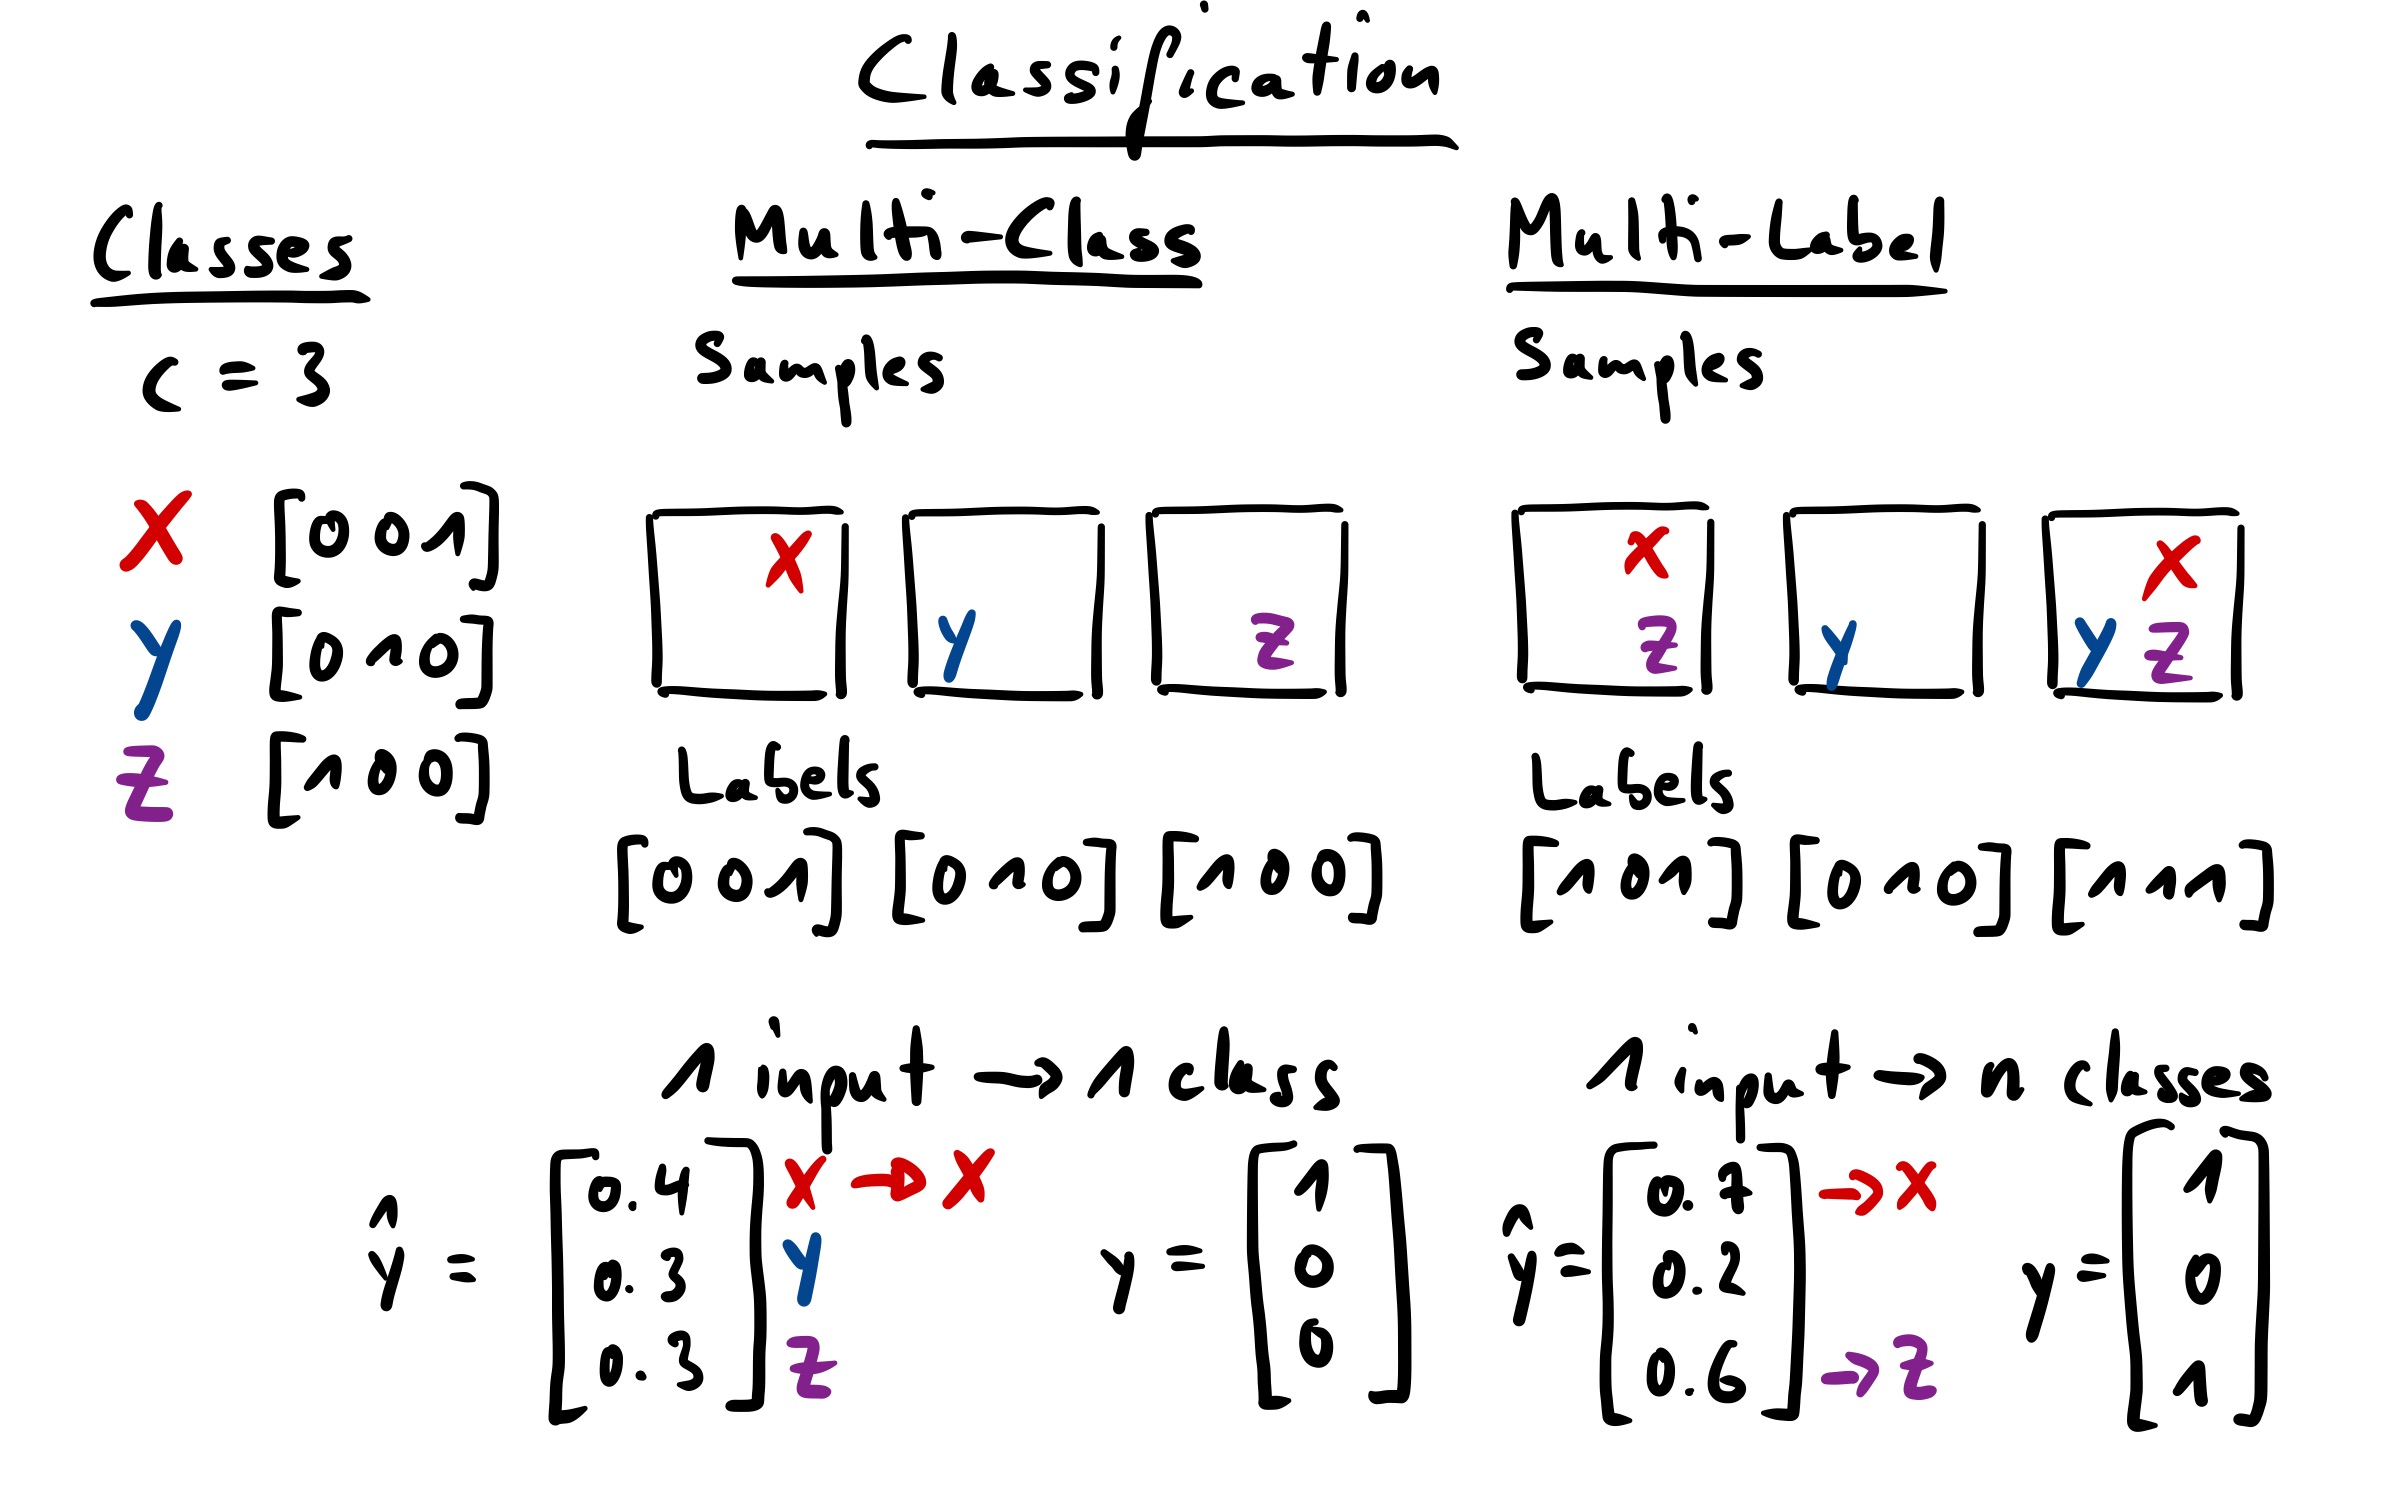 Classification
Classes
C = 3
X [0 0 1]
Y [0 1 0]
Z [1 0 0]
Multi-Class
Samples
X
Y
Z
Labels
[0 0 1] [0 1 0] [1 0 0]
1 input → 1 class
ŷ = [0.4 0.3 0.3]
X → X
Y
Z
y = [1 0 0]
Multi-Label
Samples
X Z
Y
X Y Z
Labels
[1 0 1] [0 1 0] [1 1 1]
1 input → n classes
ŷ = [0.7 0.2 0.6]
→ X
→ Z
y = [1 0 1]